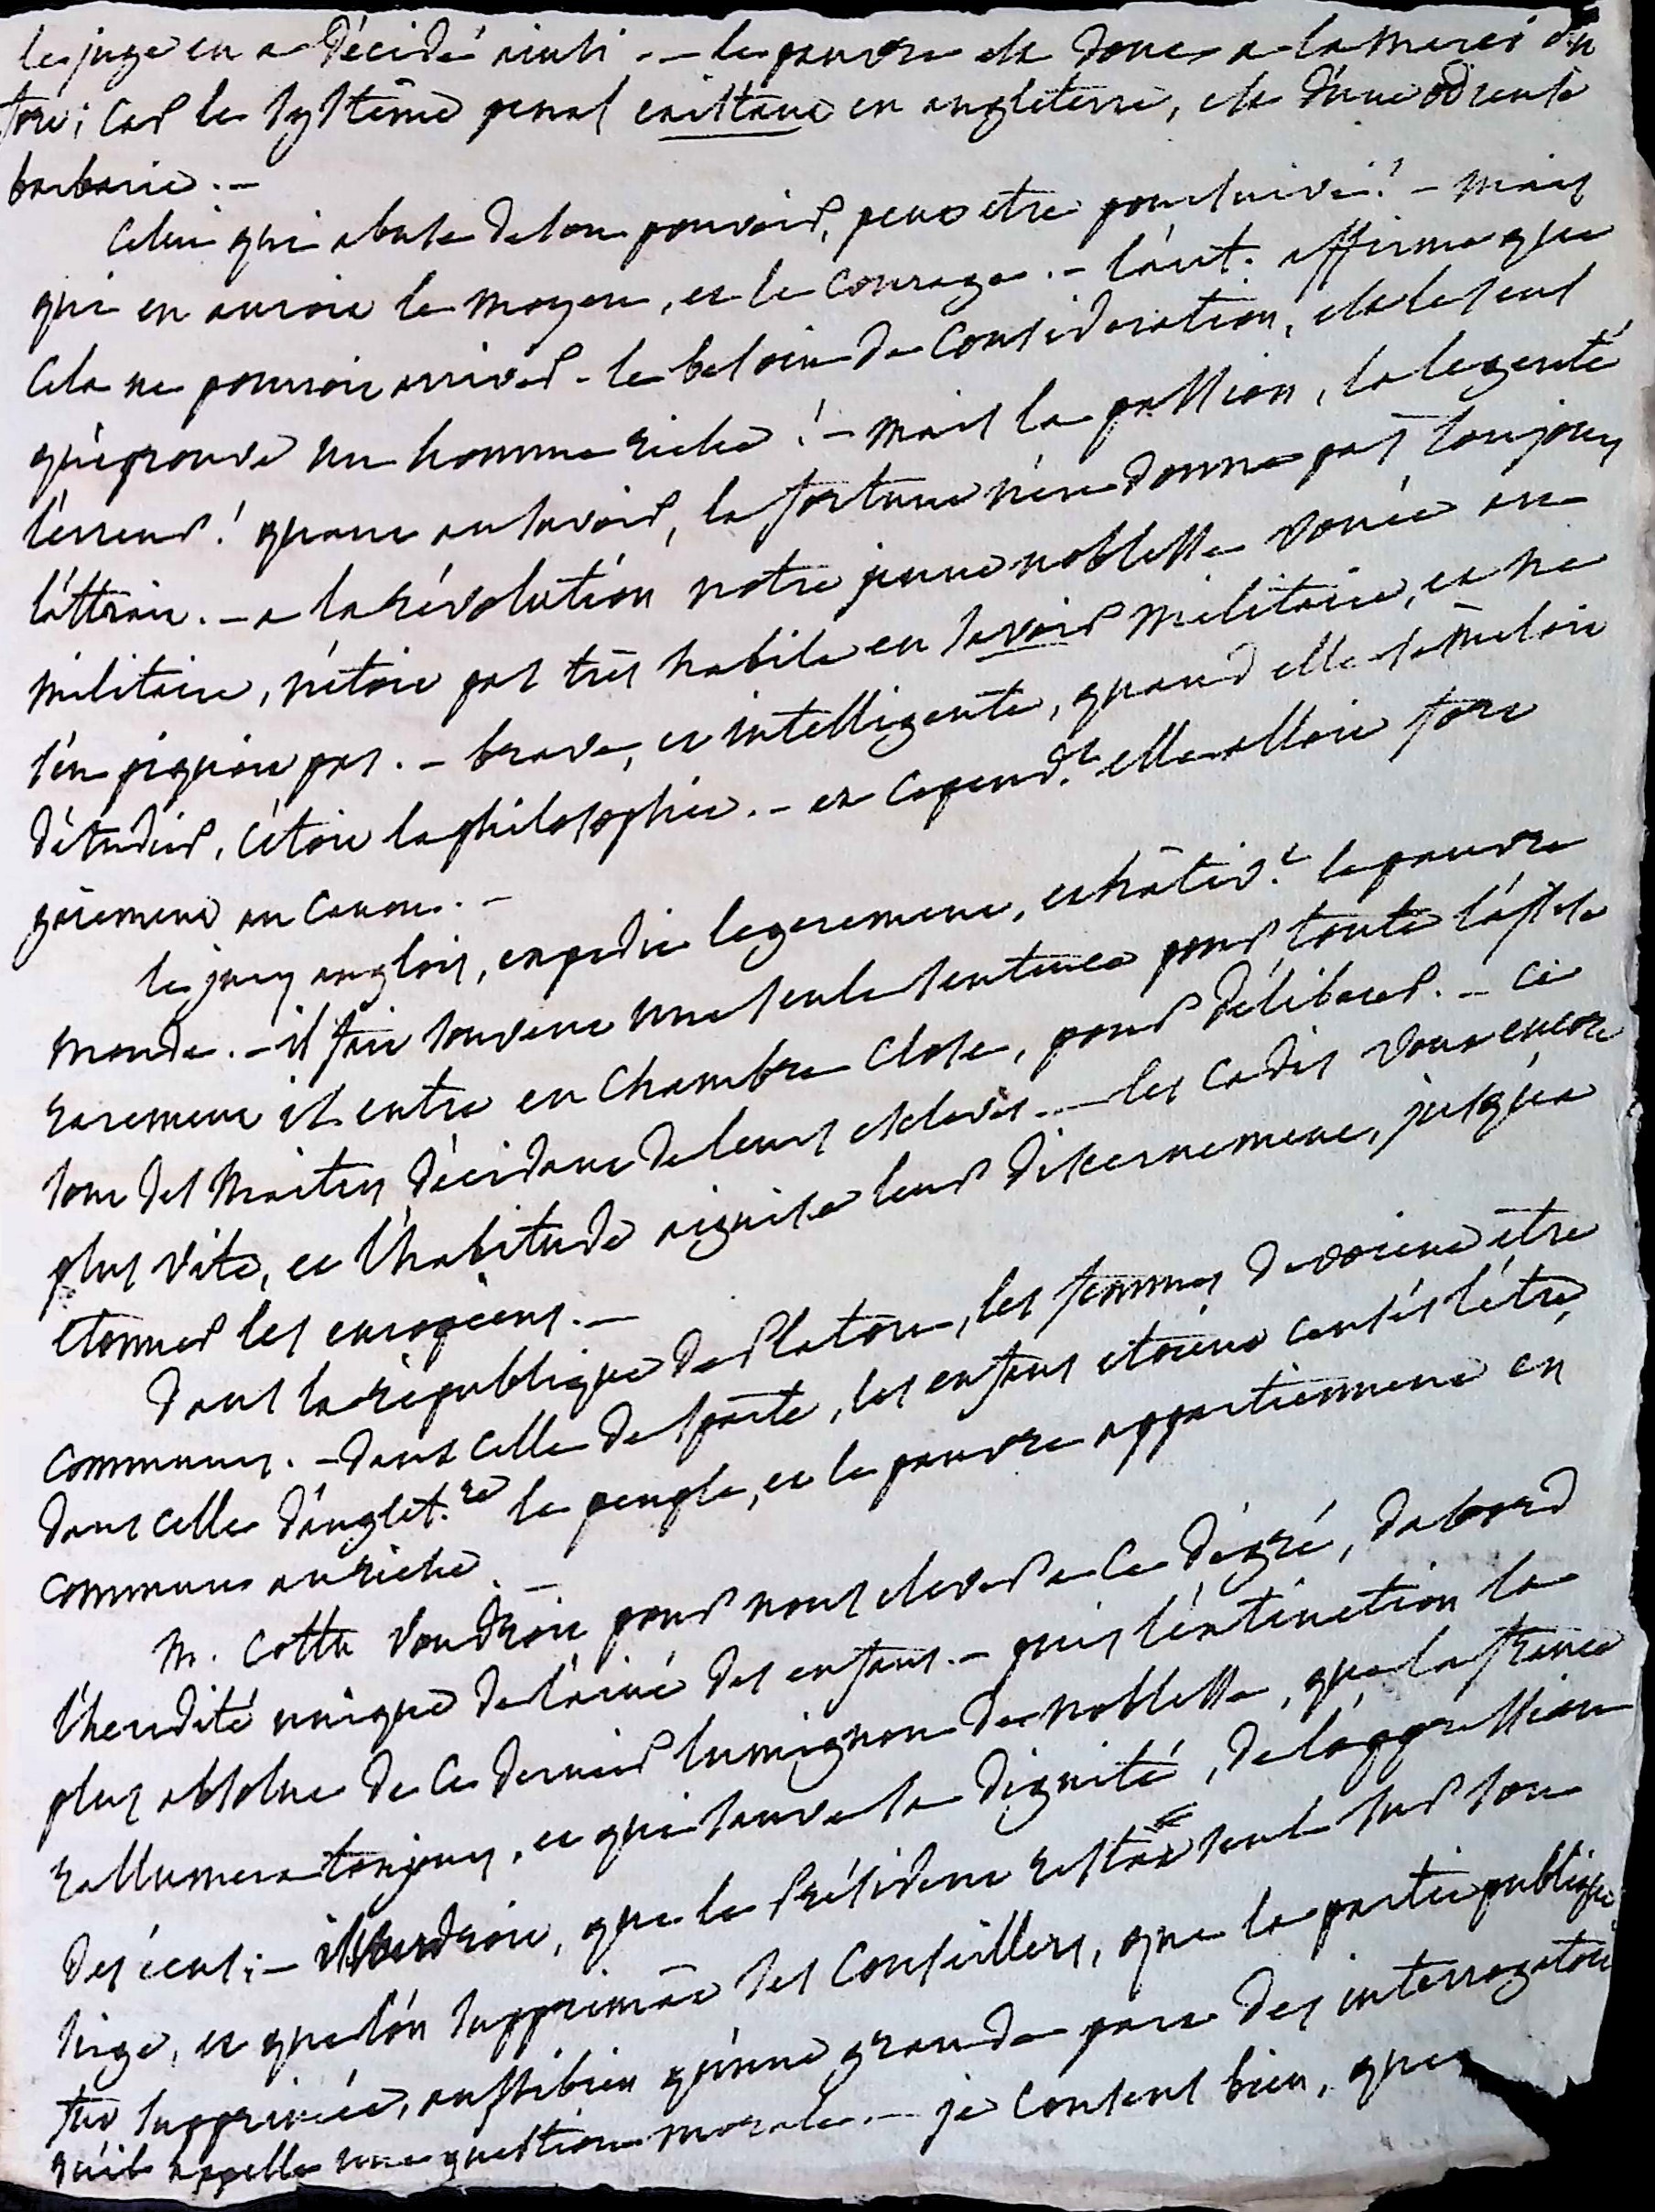 le juge en a décidé ainsi. — le pauvre est donc a la merci du
fort; car le systême penal existant en angleterre, est d'une
barbarie. —
Celui qui abuse de son pouvoir, peut etre poursuivi! — mais
qui en auroit le moyen, et le courage. — l'aut. affirme que
cela ne pourroit arriver. le besoin de consideration, est le seul
qu'éprouve un homme riche! — mais la passion, la legereté
l'erreur! quant au savoir, la fortune n'en donne pas toujours
l'attrait. — a la révolution notre jeune noblesse vouée au
militaire, n'étoit pas très habile en savoir militaire, et ne
s'en piquoit pas. — brave, et intelligente, quand elle se mêloit
d'étudier, c'étoit la philosophie. — et cepend.t elle alloit fort
gaiement au canon. —
le jury anglois, expedie legerement, et hâtiv.t le pauvre
monde. — il fait souvent une seule sentence pour toute l'assise
rarement il entre en chambre close, pour délibérer. — ce
sont des maitres décidant de leurs esclaves. — les cadis vont encore
plus vite, et l'habitude aiguise leur discernement, jusqu'a
etonner les européens. —
Dans la république de Platon, les femmes devoient être
communes. — dans celle de sparte, les enfans etoient censés l'être,
dans celle d'anglet.re le peuple, et le pauvre appartiennent en
commun au riche. —
M. Cottu voudroit pour nous elever a ce dégré, dabord
l'heredité unique de l'ainé des enfans. — puis l'extinction la
plus absolue de ce dernier lumignon de noblesse, que la france
rallumera toujours, et qui sauve sa dignité, de l'oppression
des écus; — il voudroit, que le Président restât seul sur son
siege, et que l'on supprimât ses conseillers, que la partie publique
fut supprimée, aussi bien qu'une grande part des interrogatoi
qu'il appelle une question morale. — je consens bien, que